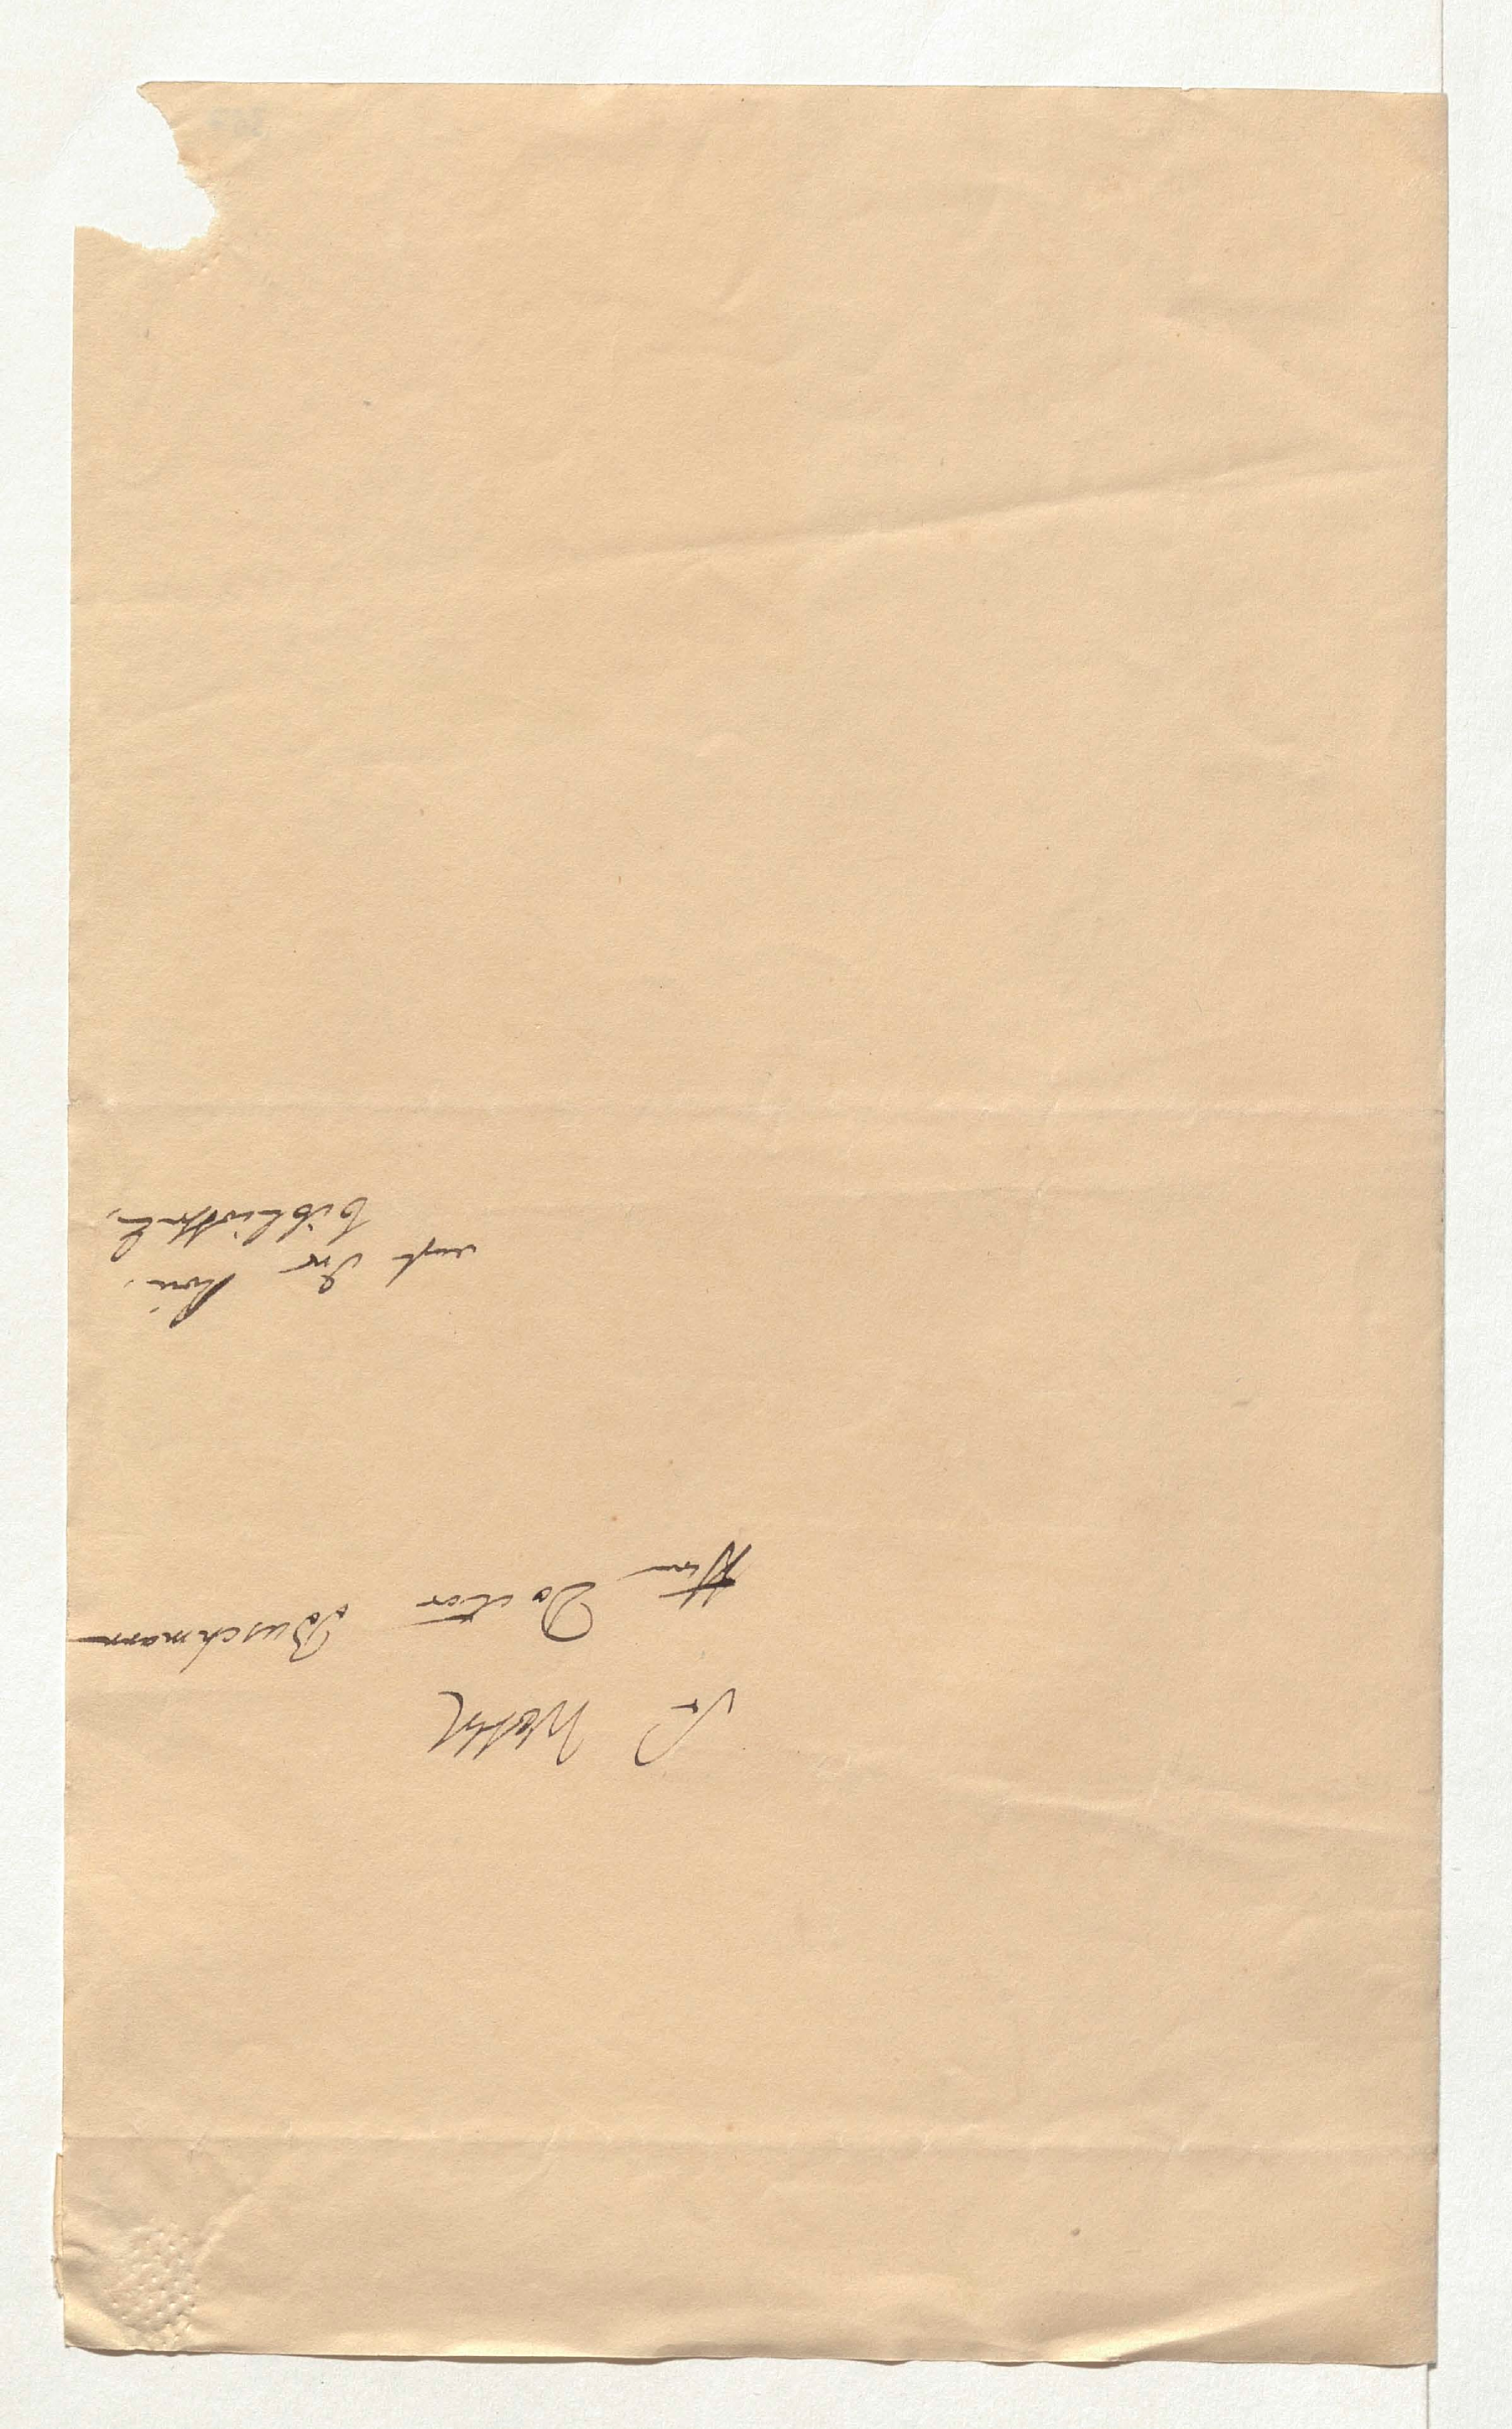 Sr Wohl
Hrn Doctor Buschmann
auf der kön.
Bibliothek.